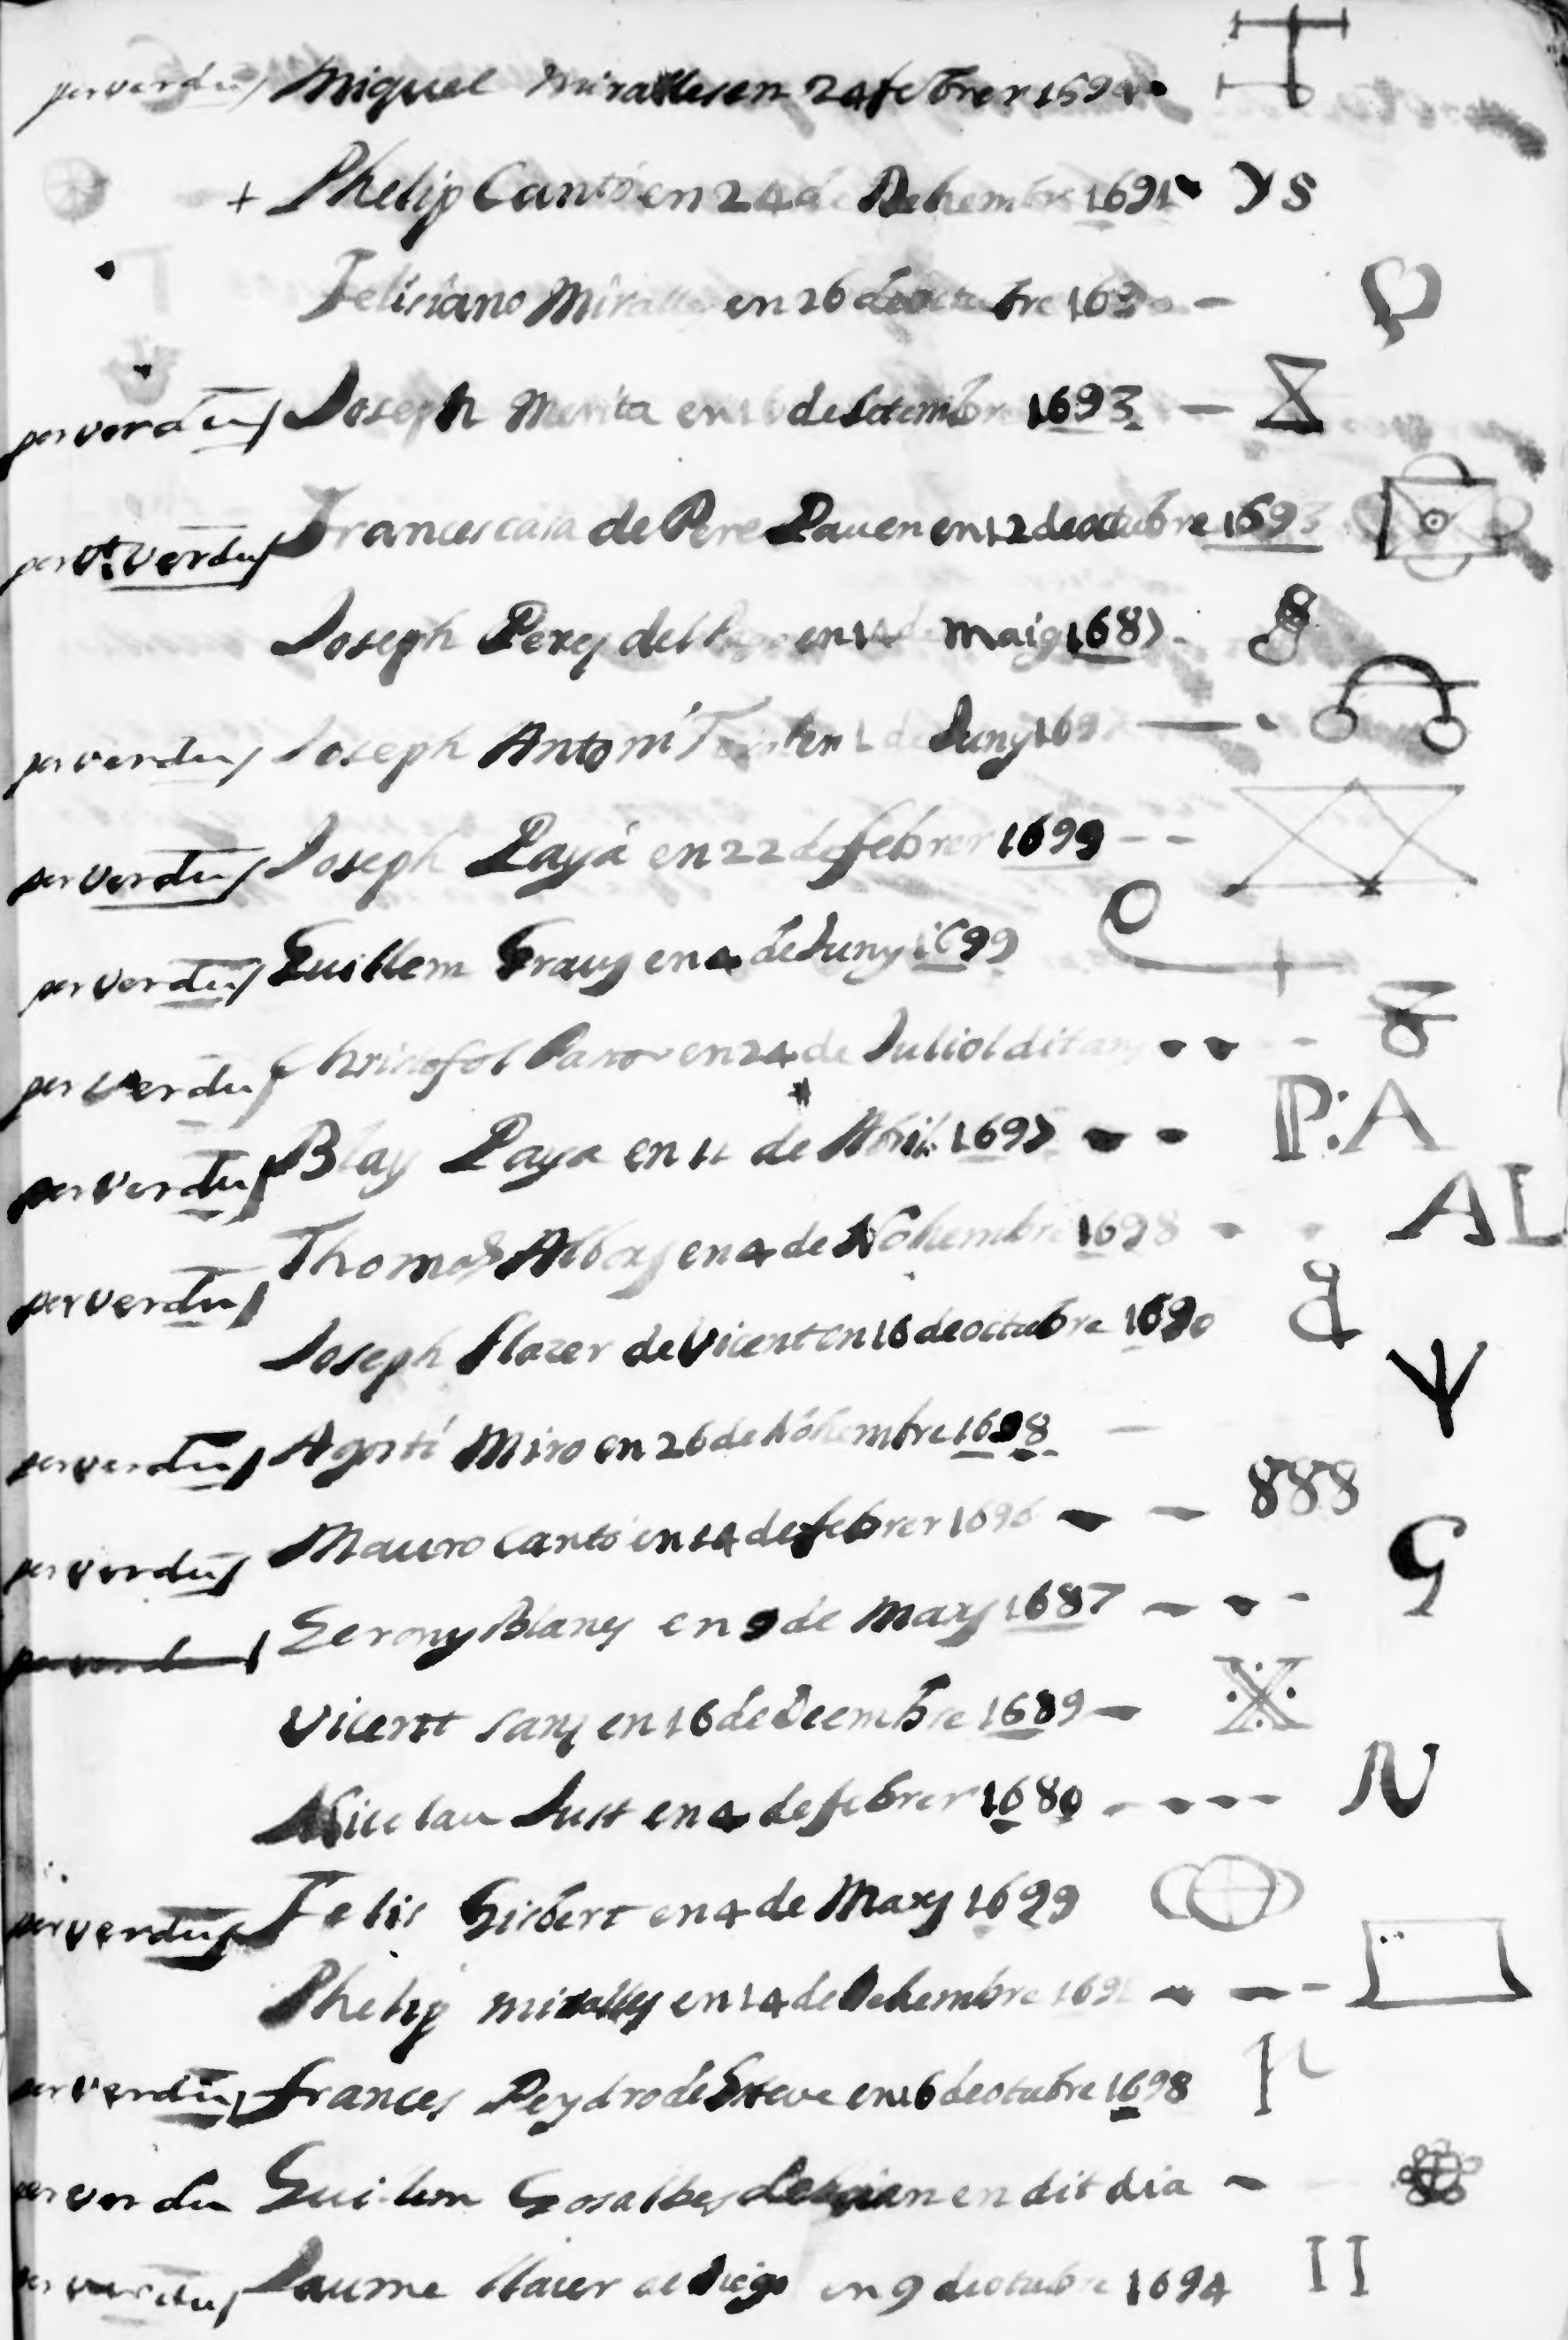 per verdu / Miquel Miralles en 24 febrer 169
+ Phelip Cantó en 24 de Dehembre 1691 YS
Feliciano Miralles en 26 de octubre 169
per verdu / Joseph Merita en de Setembre 1693
per Vt. Verdu / Francesc de Pere Pau en en 12 de octubre 1693
Joseph Perez del en 14 de maig 168 8
per verdu / Joseph Antoni en de Juny 169
per verdu / Joseph Payá en 22 de febrer 1699
per verdu / Guillem Graus en 4 de Juny 1699
per verdu / Christofol en 24 de Juliol dit any
per verdu / Blay Paya en 11 de Abril 1695 P:A
per verdu / Thomas Albors en 4 de Nohembre 1698 AL
Joseph Llazer de Vicent en 16 de octubre 1690
per verdu / Agosti Miro en 26 de Nohembre 1698
per verdu / Mauro Cantó en 14 de febrer 1696 888
Gerony Blanes en 9 de Mars 1687 G
Vicent Sanz en 16 de Deembre 1689 X
Nicolau Just en 4 de febrer 1680 N
per verdu / Felis Gisbert en 4 de Mars 1699
Phelip miralles en 14 de Dehembre 169
per verdu / frances Peydro de Esteve en 16 de otubre 1698
per verdu Guillem Gosalbes en dit dia
per verdu / Jaume Llacer de Diego en 9 de otubre 1694 II